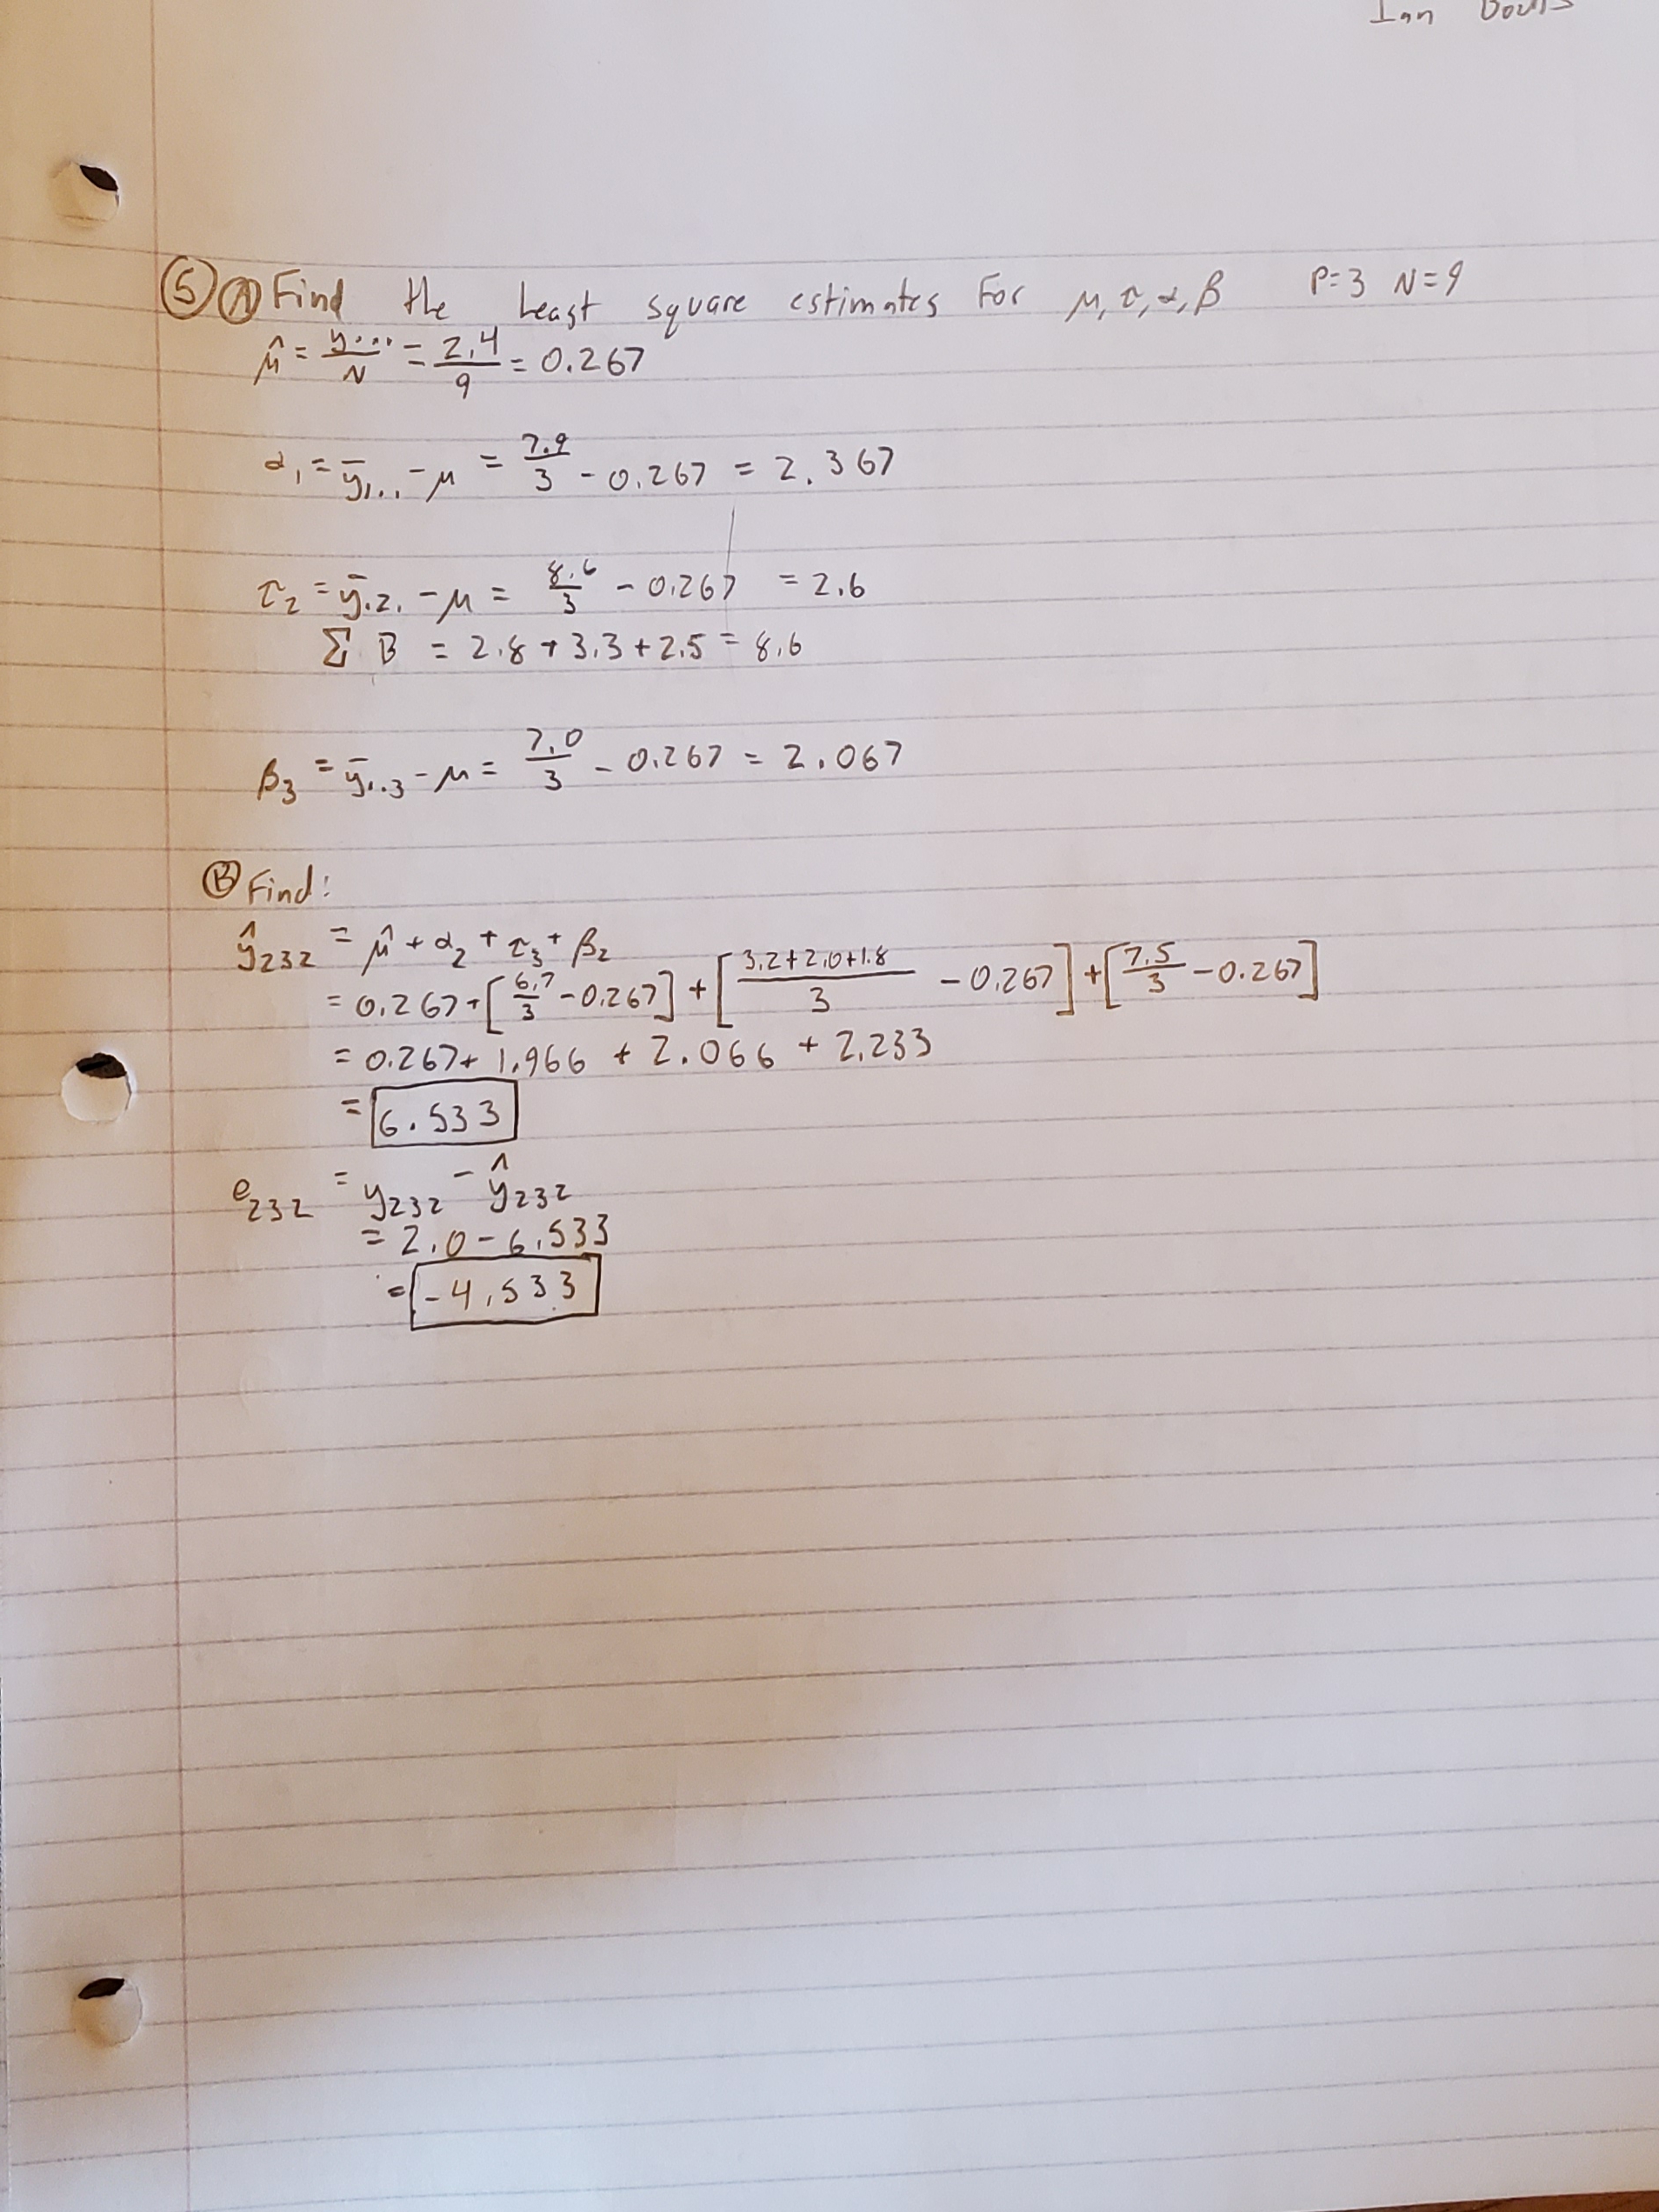 Ian
⑤ Ⓐ Find the Least square estimates For μ, τ, α, β P=3 N=9
μ̂ = y.../N = 2.4/9 = 0.267
α₁ = ȳ₁.. - μ = 7.9/3 - 0.267 = 2.367
τ₂ = ȳ.₂. - μ = 8.6/3 - 0.267 = 2.6
Σ B = 2.8 + 3.3 + 2.5 = 8.6
β₃ = ȳ₁.₃ - μ = 7.0/3 - 0.267 = 2.067
Ⓑ Find:
ŷ₂₃₂ = μ̂ + α₂ + τ₃ + β₂
= 0.267 + [6.7/3 - 0.267] + [3.2+2.0+1.8/3 - 0.267] + [7.5/3 - 0.267]
= 0.267 + 1.966 + 2.066 + 2.233
= 6.533
e₂₃₂ = y₂₃₂ - ŷ₂₃₂
= 2.0 - 6.533
= -4.533